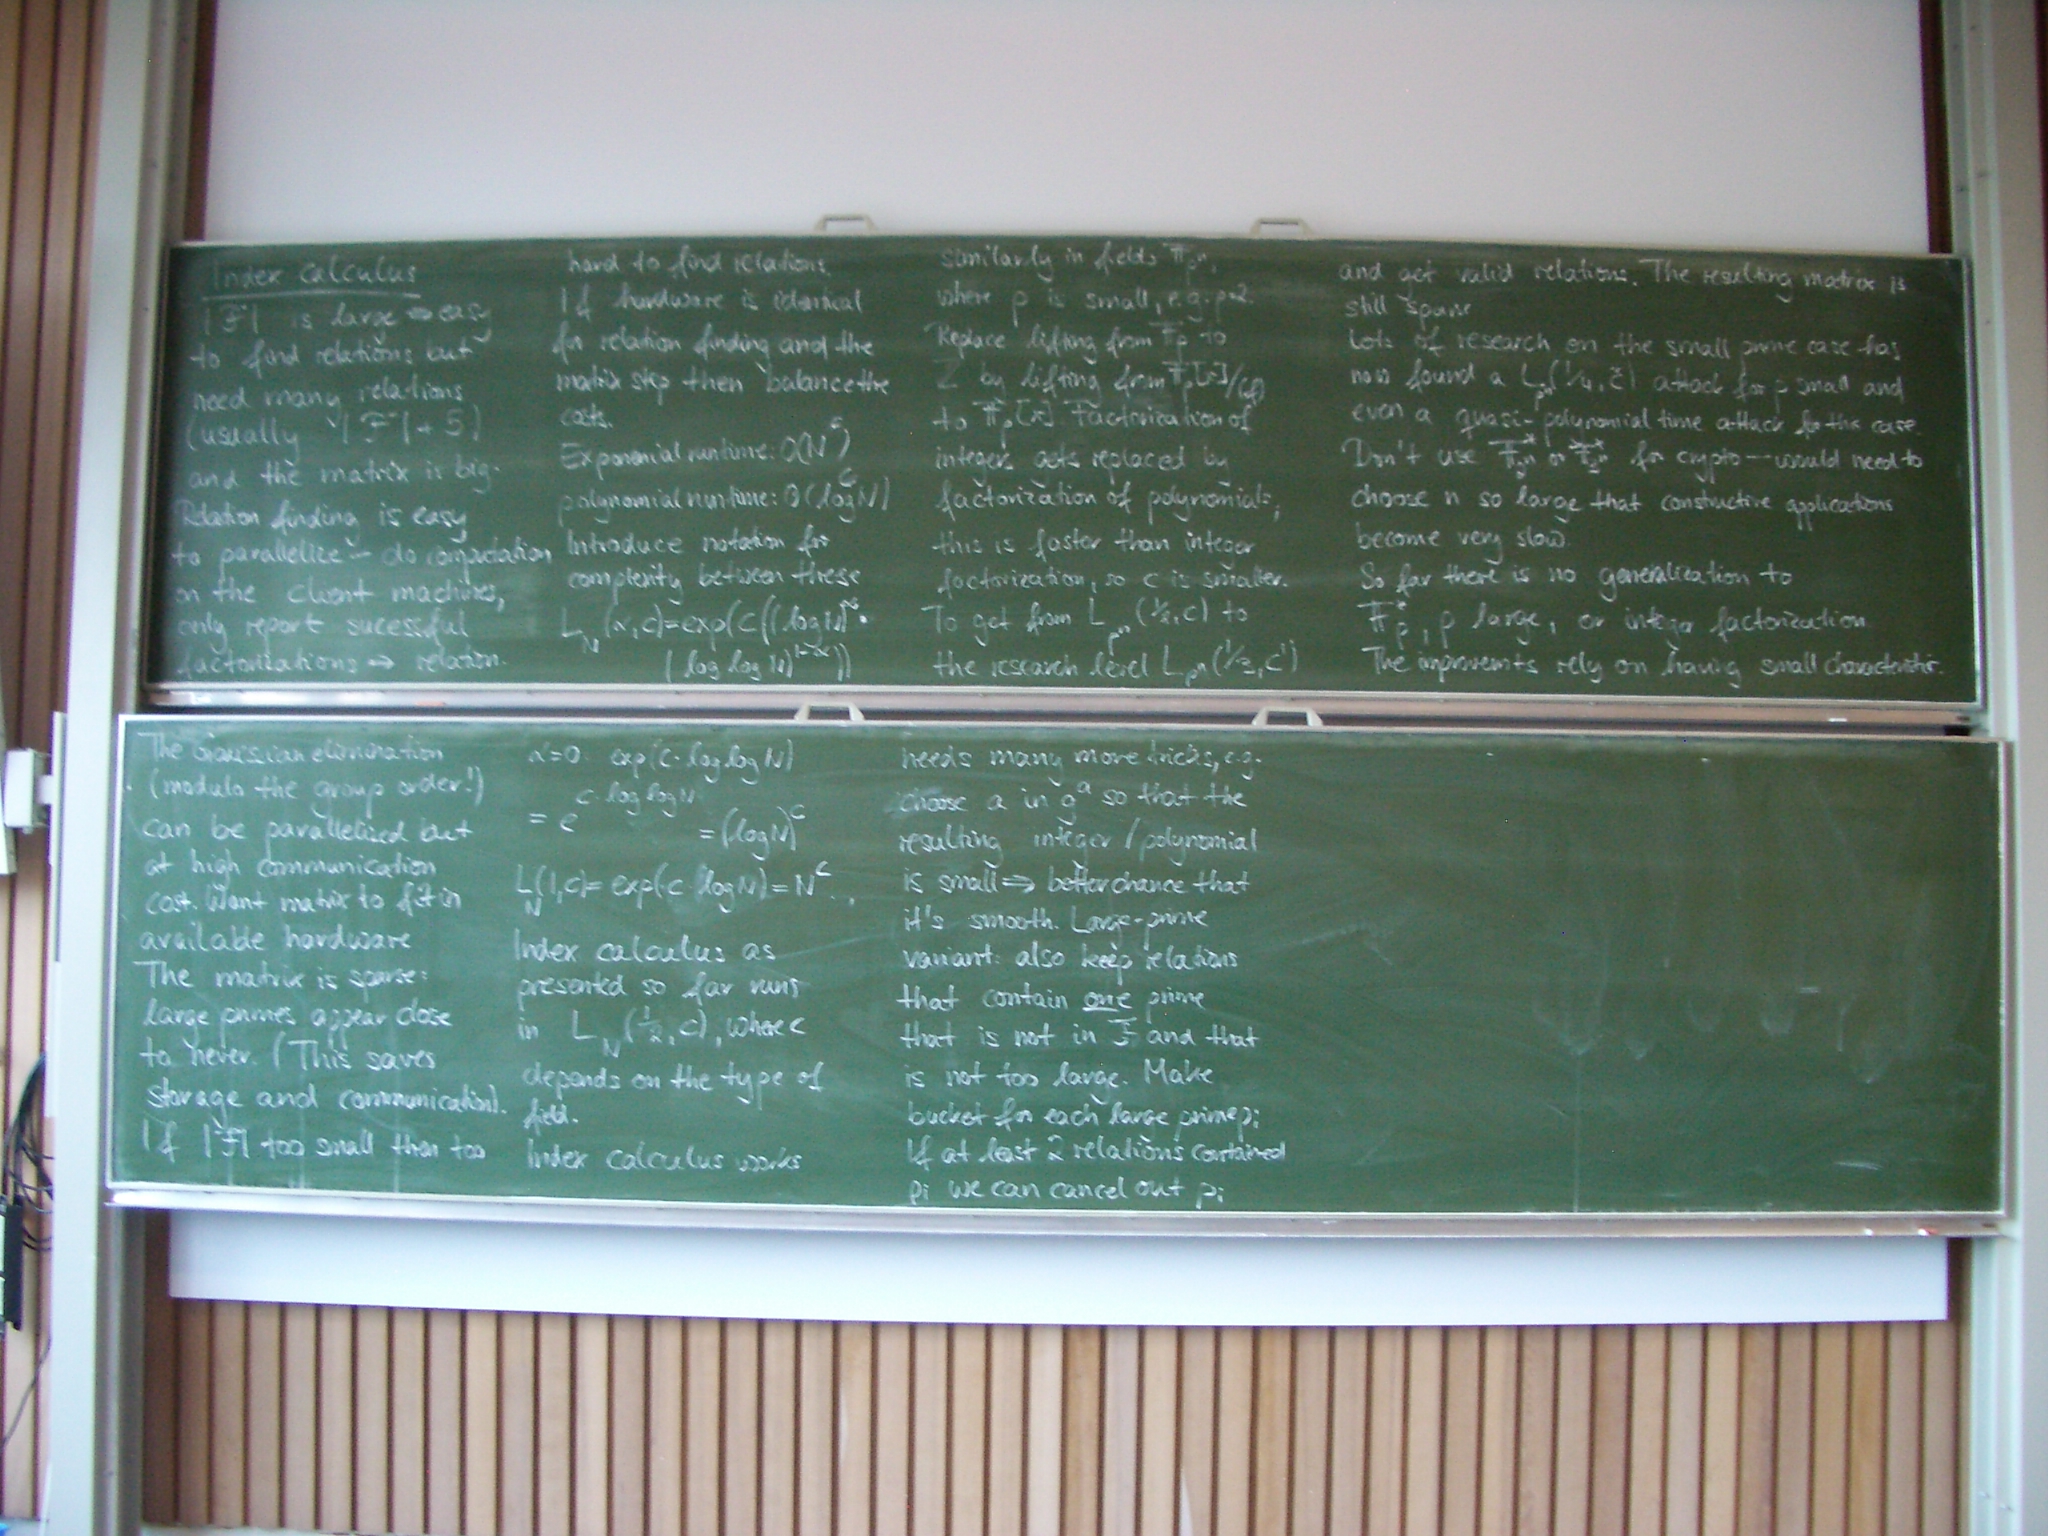 Index calculus
|F| is large ⇒ easy
to find relations but
need many relations
(usually |F|+5)
and the matrix is big.
Relation finding is easy
to parallelize – do computation
on the client machines,
only report sucessful
factorizations ⇒ relation.
The Gaussian elimination
(modulo the group order!)
can be parallelized but
at high communication
cost. Want matrix to fit in
available hardware
The matrix is sparse:
large primes appear close
to never. (This saves
storage and communication).
If |F| too small then too
hard to find relations.
If hardware is identical
for relation finding and the
matrix step then balance the
costs.
Exponential runtime: O(N^c)
polynomial runtime: O((log N)^c)
Introduce notation for
complexity between these
L_N(α,c)=exp(c((log N)^α·
(log log N)^{1-α}))
α=0 exp(c·log log N)
= e^{c·log log N} = (log N)^c
L_N(1,c)= exp(c log N) = N^c
Index calculus as
presented so far runs
in L_N(1/2,c), where c
depends on the type of
field.
Index calculus works
similarly in fields F_{p^n},
where p is small, e.g. p=2.
Replace lifting from F_p to
Z by lifting from F_p[x]/(f)
to F_p[x]. Factorization of
integers gets replaced by
factorization of polynomials,
this is faster than integer
factorization, so c is smaller.
To get from L_{p^n}(1/2,c) to
the research level L_{p^n}(1/3,c')
needs many more tricks, e.g.
choose a in g^a so that the
resulting integer/polynomial
is small ⇒ better chance that
it's smooth. Large-prime
variant: also keep relations
that contain one prime
that is not in F and that
is not too large. Make
bucket for each large prime p_i
If at least 2 relations contained
p_i we can cancel out p_i
and get valid relations. The resulting matrix is
still sparse
Lots of research on the small prime case has
now found a L_{p^n}(1/4, c̃) attack for p small and
even a quasi-polynomial time attack for this case.
Don't use F*_{2^n} or F*_{3^n} for crypto — would need to
choose n so large that constructive applications
become very slow.
So far there is no generalization to
F*_p, p large, or integer factorization.
The improvemts rely on having small characteristic.